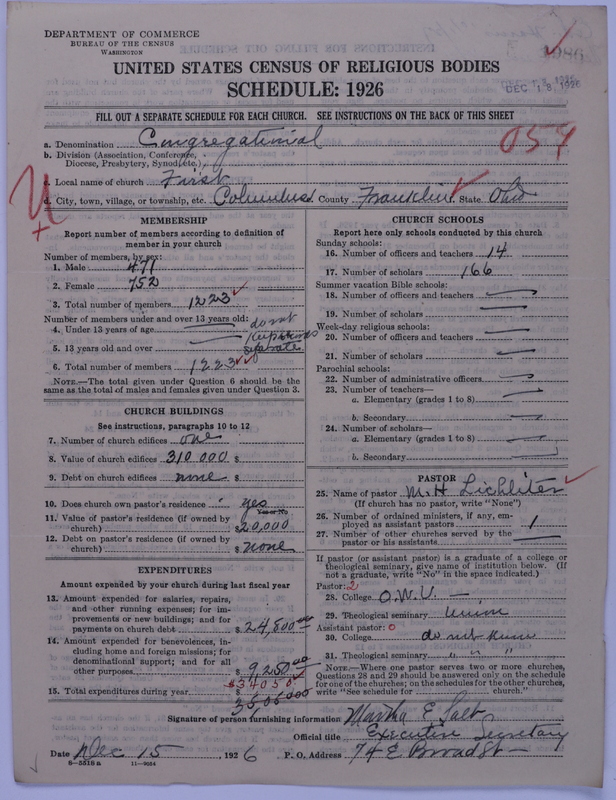 DEPARTMENT OF COMMERCE
BUREAU OF THE CENSUS
WASHINGTON
DEC 18 1926
UNITED STATES CENSUS OF RELIGIOUS BODIES
SCHEDULE: 1926
FILL OUT A SEPARATE SCHEDULE FOR EACH CHURCH. SEE INSTRUCTIONS ON THE BACK OF THIS SHEET
a. Denomination Congregational
b. Division (Association, Conference,
Diocese, Presbytery, Synod, etc.)
c. Local name of church First
d. City, town, village, or township, etc. Columbus County Franklin State Ohio
MEMBERSHIP
Report number of members according to definition of
member in your church
Number of members, by sex:
1. Male 471
2. Female 752
3. Total number of members 1223
Number of members under and over 13 years old:
4. Under 13 years of age do not
keep records
5. 13 years old and over separate
6. Total number of members 1223
NOTE.—The total given under Question 6 should be the
same as the total of males and females given under Question 3.
CHURCH BUILDINGS
See instructions, paragraphs 10 to 12
7. Number of church edifices one
8. Value of church edifices 310000 $
9. Debt on church edifices none $
10. Does church own pastor's residence yes
Yes or No
11. Value of pastor's residence (if owned by
church) $20,000
12. Debt on pastor's residence (if owned by
church) $ none
EXPENDITURES
Amount expended by your church during last fiscal year
13. Amount expended for salaries, repairs,
and other running expenses; for im-
provements or new buildings; and for
payments on church debt $24,800.00
14. Amount expended for benevolences, in-
cluding home and foreign missions; for
denominational support; and for all
other purposes $9,250.00
$34050
15. Total expenditures during year $
CHURCH SCHOOLS
Report here only schools conducted by this church
Sunday schools:
16. Number of officers and teachers 14
17. Number of scholars 166
Summer vacation Bible schools:
18. Number of officers and teachers —
19. Number of scholars —
Week-day religious schools:
20. Number of officers and teachers —
21. Number of scholars —
Parochial schools:
22. Number of administrative officers —
23. Number of teachers—
a. Elementary (grades 1 to 8) —
b. Secondary —
24. Number of scholars—
a. Elementary (grades 1 to 8) —
b. Secondary
PASTOR
25. Name of pastor M. H. Lichliter
(If church has no pastor, write "None")
26. Number of ordained ministers, if any, em-
ployed as assistant pastors 1
27. Number of other churches served by the
pastor or his assistants —
If pastor (or assistant pastor) is a graduate of a college or
theological seminary, give name of institution below. (If
not a graduate, write "No" in the space indicated.)
Pastor: 2
28. College O.W.U. —
29. Theological seminary Union
Assistant pastor: 0
30. College do not know
31. Theological seminary " " "
NOTE.—Where one pastor serves two or more churches,
Questions 28 and 29 should be answered only on the schedule
for one of the churches; on the schedules for the other churches,
write "See schedule for church."
Signature of person furnishing information Martha E.
Official title Executive Secretary
Date Dec 15 —, 1926 P. O. Address 74 E Broad St —
8—5518a 11—9024